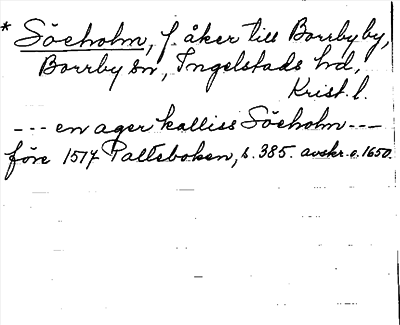 * Söeholm, f. åker till Borrby by,
Borrby sn, Ingelstads hd,
Krist. l.
--- en ager kalliss Söeholm ---
före 1517 Palteboken, s. 385. avskr. c. 1650.